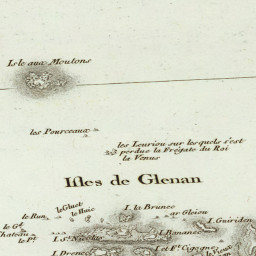 Isle aux Moutons
les Pourceaux
les Leuriou sur lesquels s'est
perdue la Frégate du Roi
la Venus
Isles de Glenan
le Gluet
le Run
le Huic
I. la Brunec
ar Gleiou
I. Guiriden
le Gd.
Chateau
le Pt.
I. St. Nicolas
I. Bananec
I. Drenec
I. et Ft. Cigogne
le Vieux